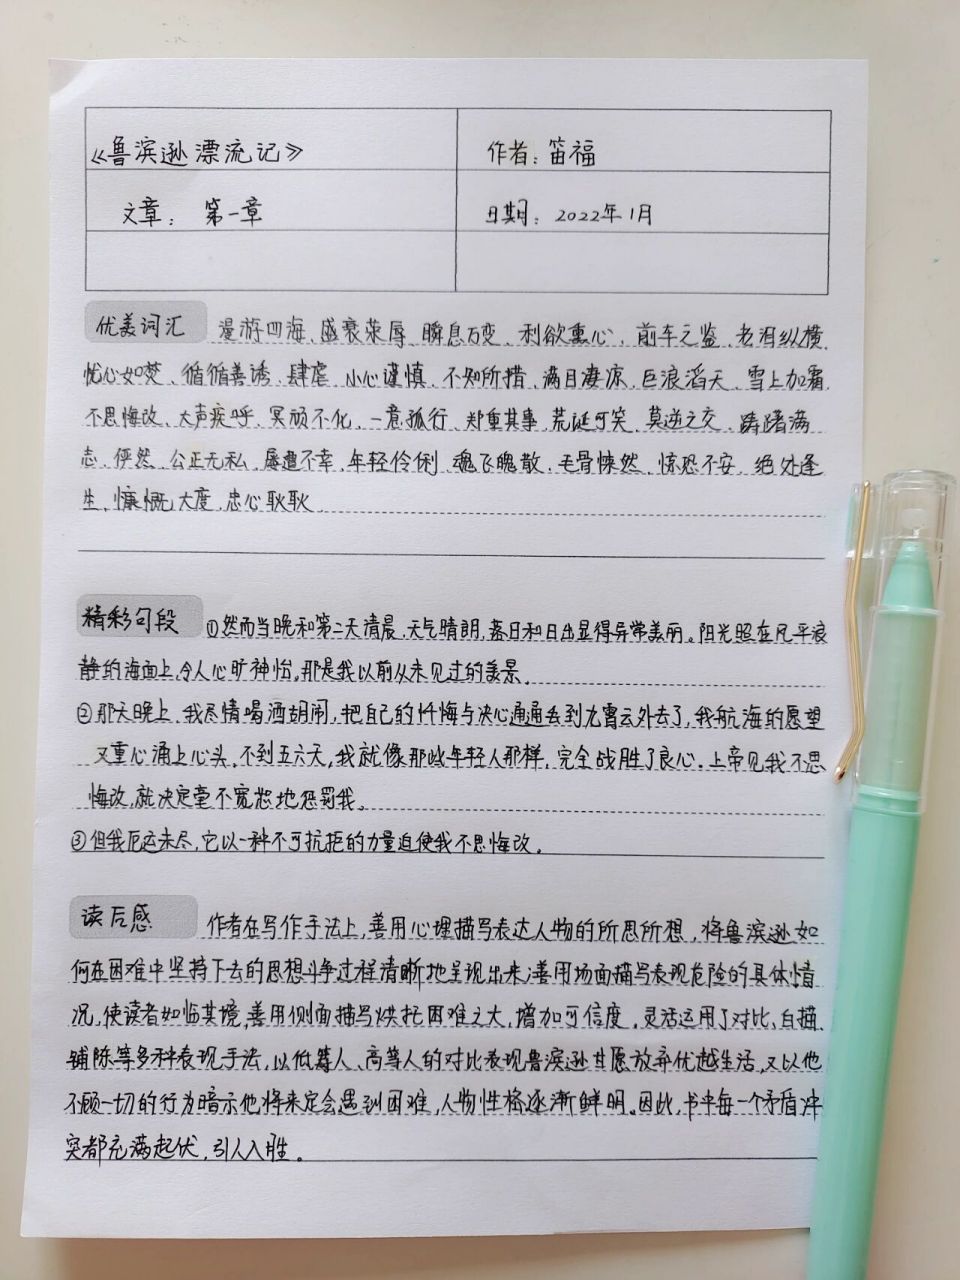 《鲁滨逊漂流记》
作者：笛福
文章： 第一章
日期：2022年1月
优美词汇 漫游四海、盛衰荣辱、瞬息万变、利欲熏心、前车之鉴、老泪纵横、
忧心如焚、循循善诱、肆虐、小心谨慎、不知所措、满目凄凉、巨浪滔天、雪上加霜、
不思悔改、大声疾呼、冥顽不化、一意孤行、郑重其事、荒诞可笑、莫逆之交、踌躇满
志、俨然、公正无私、屡遭不幸、年轻伶俐、魂飞魄散、毛骨悚然、惊恐不安、绝处逢
生、慷慨大度、忠心耿耿
精彩句段 ①然而当晚和第二天清晨，天气晴朗，落日和日出显得异常美丽。阳光照在风平浪
静的海面上，令人心旷神怡，那是我以前从未见过的美景。
②那天晚上，我尽情喝酒胡闹，把自己的忏悔与决心通通丢到九霄云外去了，我航海的愿望
又重心涌上心头，不到五六天，我就像那些年轻人那样，完全战胜了良心。上帝见我不思
悔改，就决定毫不宽恕地惩罚我。
③但我厄运未尽，它以一种不可抗拒的力量迫使我不思悔改。
读后感 作者在写作手法上，善用心理描写表达人物的所思所想，将鲁滨逊如
何在困难中坚持下去的思想斗争过程清晰地呈现出来；善用场面描写表现危险的具体情
况，使读者如临其境，善用侧面描写烘托困难之大，增加可信度，灵活运用了对比，白描、
铺陈等多种表现手法，以低等人、高等人的对比表现鲁滨逊甘愿放弃优越生活，又以他
不顾一切的行为暗示他将来定会遇到困难，人物性格逐渐鲜明。因此，书中每一个矛盾冲
突都充满起伏，引人入胜。